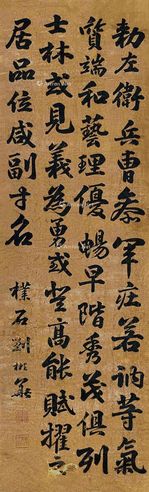 勅左衛兵曹參軍莊若訥等氣
質端和藝理優暢早階秀茂俱列
士林或見義為勇或登高能賦擢
居品位咸副才名
樸石劉彬華